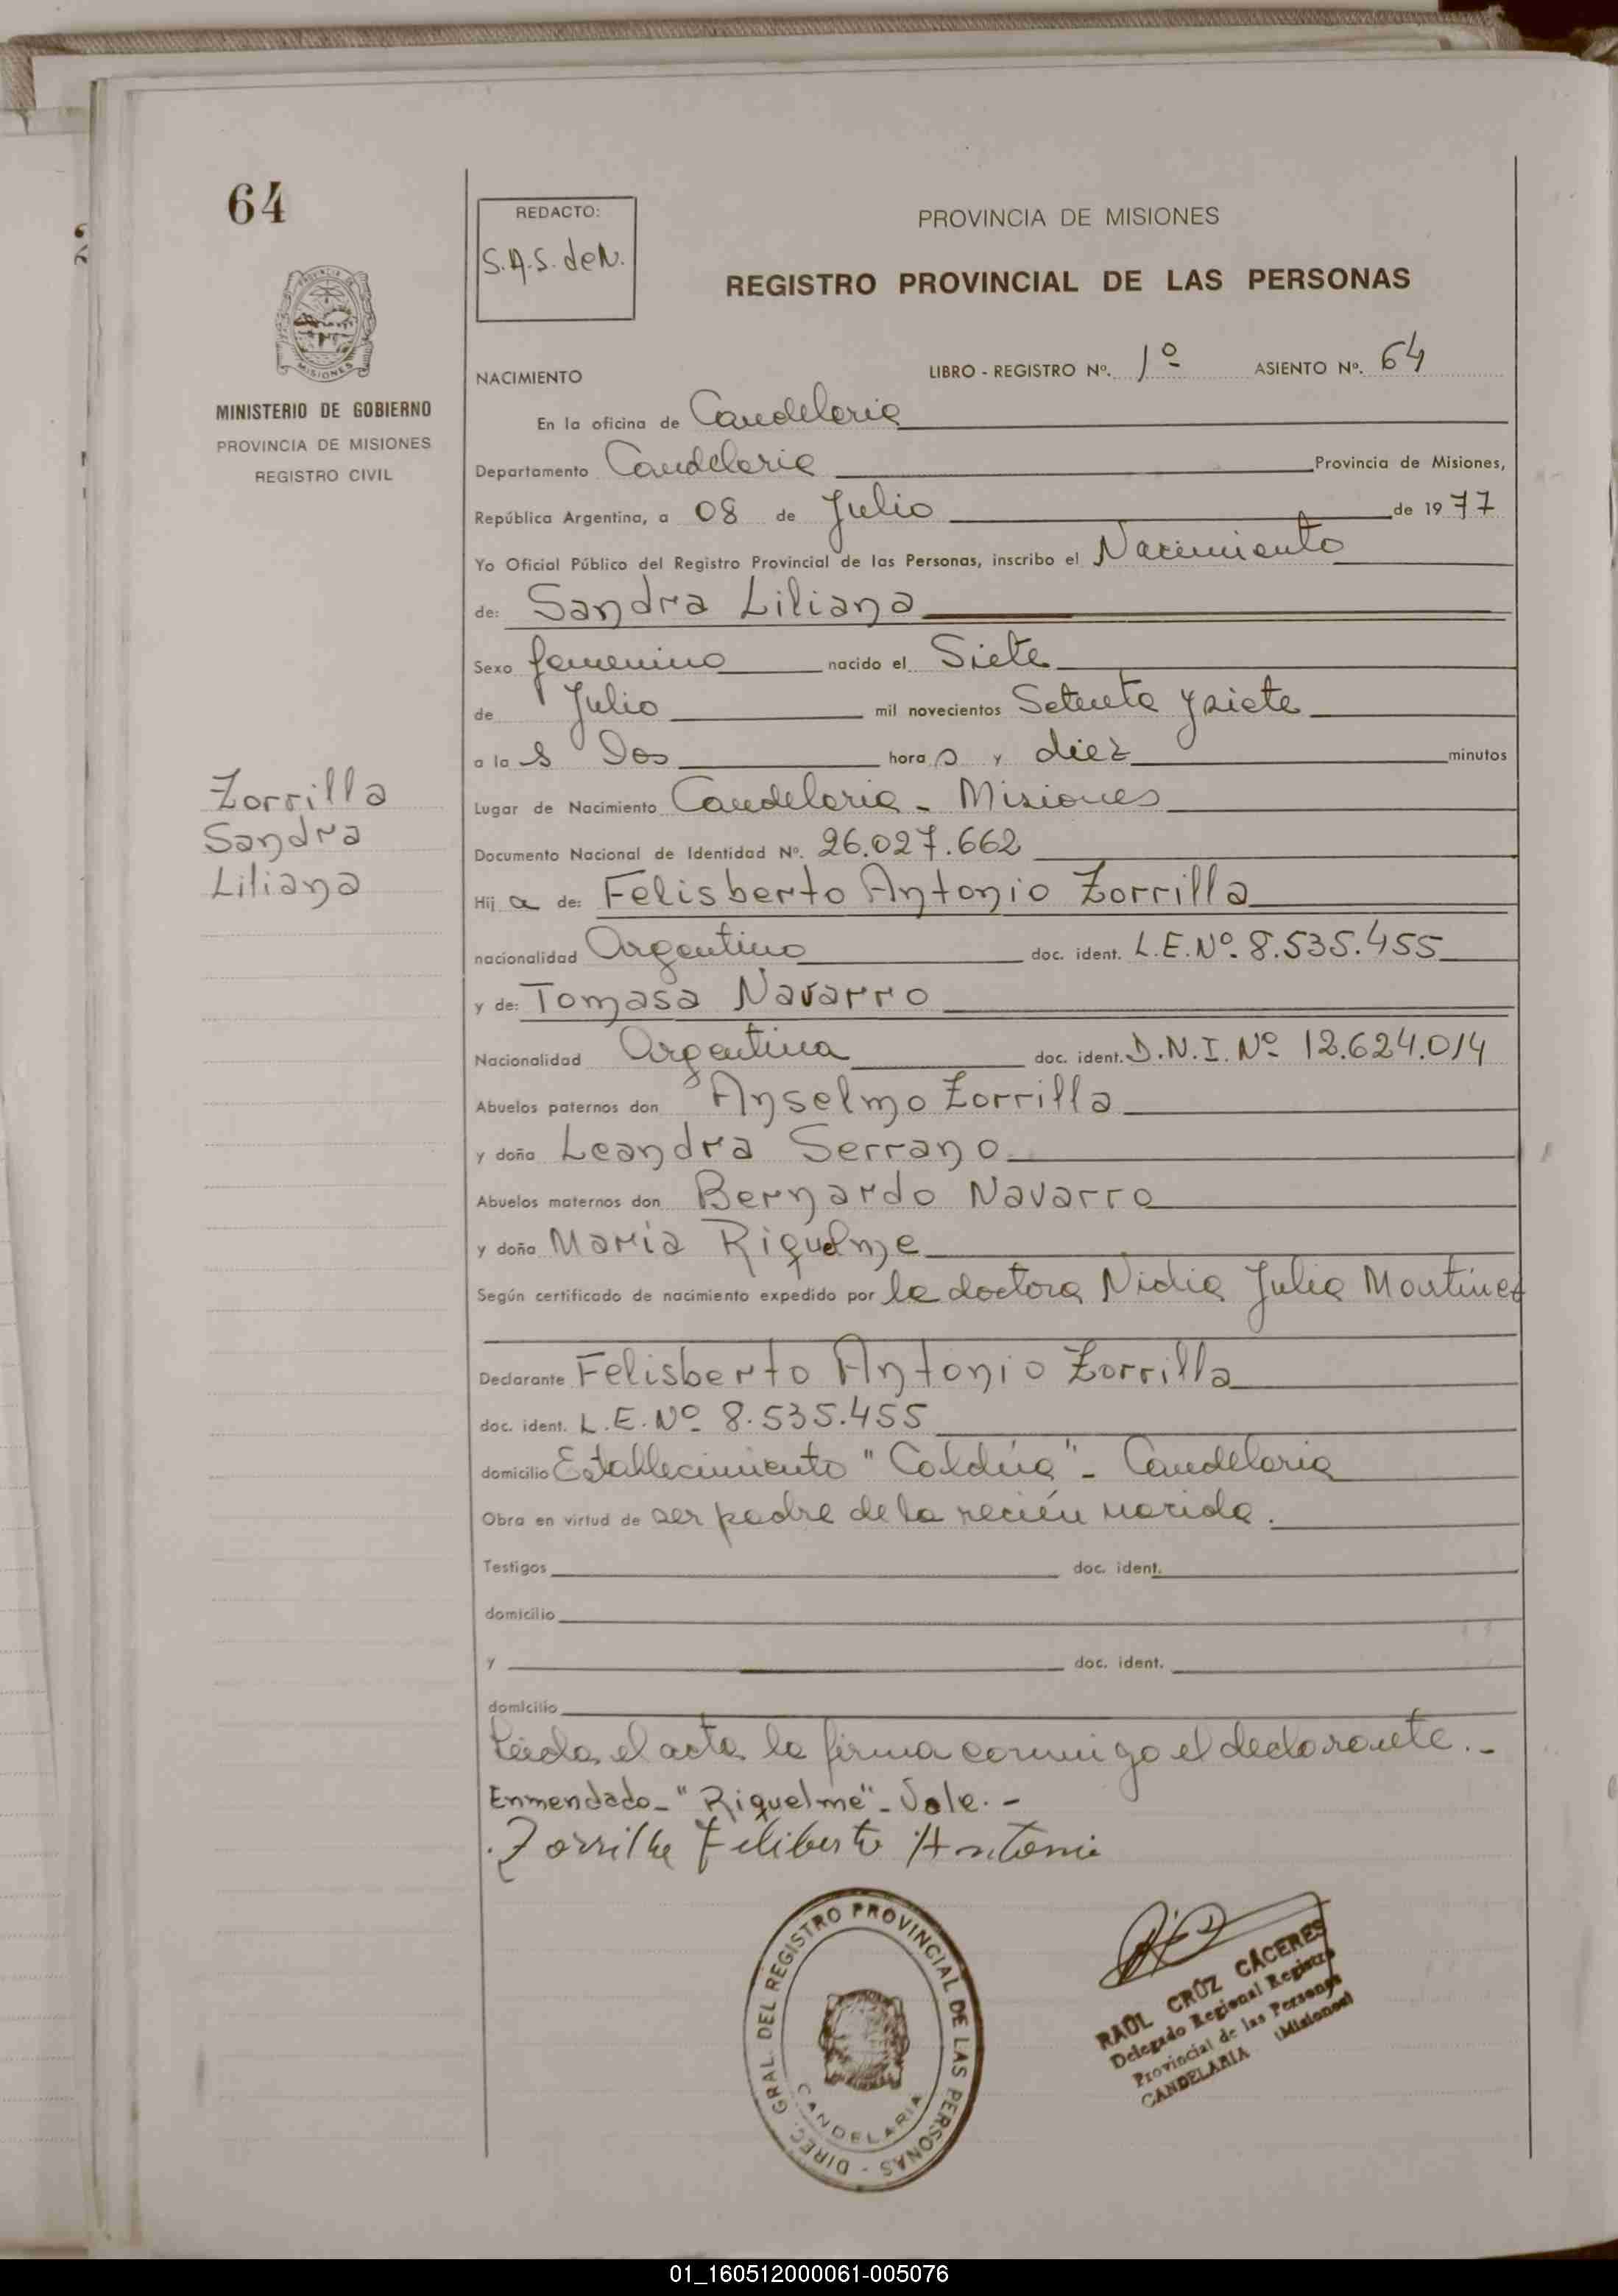 64
REDACTO:
S.A.S. deN.
PROVINCIA DE MISIONES
REGISTRO PROVINCIAL DE LAS PERSONAS
PROVINCIA DE
MISIONES
MINISTERIO DE GOBIERNO
PROVINCIA DE MISIONES
REGISTRO CIVIL
NACIMIENTO
LIBRO - REGISTRO Nº. 1º ASIENTO Nº. 64
En la oficina de Candelaria
Departamento Candelaria Provincia de Misiones,
República Argentina, a 08 de Julio de 1977
Yo Oficial Público del Registro Provincial de las Personas, inscribo el Nacimiento
de: Sandra Liliana
Sexo femenino nacido el Siete
de Julio mil novecientos Setenta y siete
a la s Dos hora s y diez minutos
Lugar de Nacimiento Candelaria - Misiones
Documento Nacional de Identidad Nº. 26.027.662
Zorrilla
Sandra
Liliana
Hij a de: Felisberto Antonio Zorrilla
nacionalidad Argentino doc. ident. L.E. Nº 8.535.455
y de: Tomasa Navarro
Nacionalidad Argentina doc. ident. D.N.I. Nº 12.624.014
Abuelos paternos don Anselmo Zorrilla
y doña Leandra Serrano
Abuelos maternos don Bernardo Navarro
y doña María Riquelme
Según certificado de nacimiento expedido por la doctora Nidia Julia Martinez
Declarante Felisberto Antonio Zorrilla
doc. ident. L.E. Nº 8.535.455
domicilio Establecimiento "Caldúa" - Candelaria
Obra en virtud de ser padre de la recién nacida.
Testigos doc. ident.
domicilio
y doc. ident.
domicilio
Leída el acta la firma conmigo el declarante.-
Enmendado - "Riquelme" - Vale.-
Zorrilla Feliberto Antonio
DIREC. GRAL. DEL REGISTRO PROVINCIAL DE LAS PERSONAS -
CANDELARIA
RAÚL CRÚZ CÁCERES
Delegado Regional Registro
Provincial de las Personas
CANDELARIA (Misiones)
01_160512000061-005076